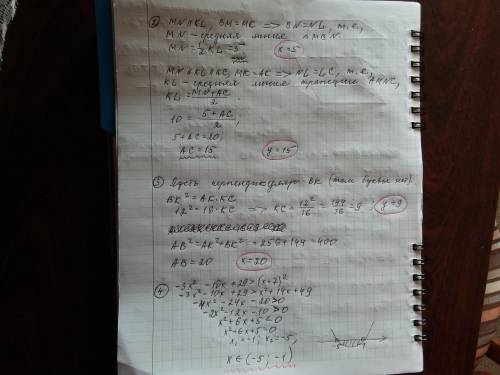 ② MN ∥ KL, BM=MK => BN=NL, т.е.,
MN - средняя линия △ KBL.
MN = 1/2 KL = 5
x=5
MN ∥ KL ∥ AC, MK=AK => NL=LC, т.е.,
KL - средняя линия трапеции AMNC,
KL = (MN+AC)/2
10 = (5+AC)/2;
5+AC=20;
AC=15
y=15
③ Пусть перпендикуляр BK (там буквы нет).
BK² = AK·KC
12² = 16·KC => KC = 12²/16 = 144/16 = 9
y=9
AB² = AK²+BK² = 256+144=400
AB=20
x=20
④ -3x²-10x+29>(x+7)²
-3x²-10x+29>x²+14x+49
-4x²-24x-20>0
-2x²-12x-10>0
x²+6x+5<0
x²+6x+5=0
x₁=-1; x₂=-5,
-5 -1
x∈(-5;-1)